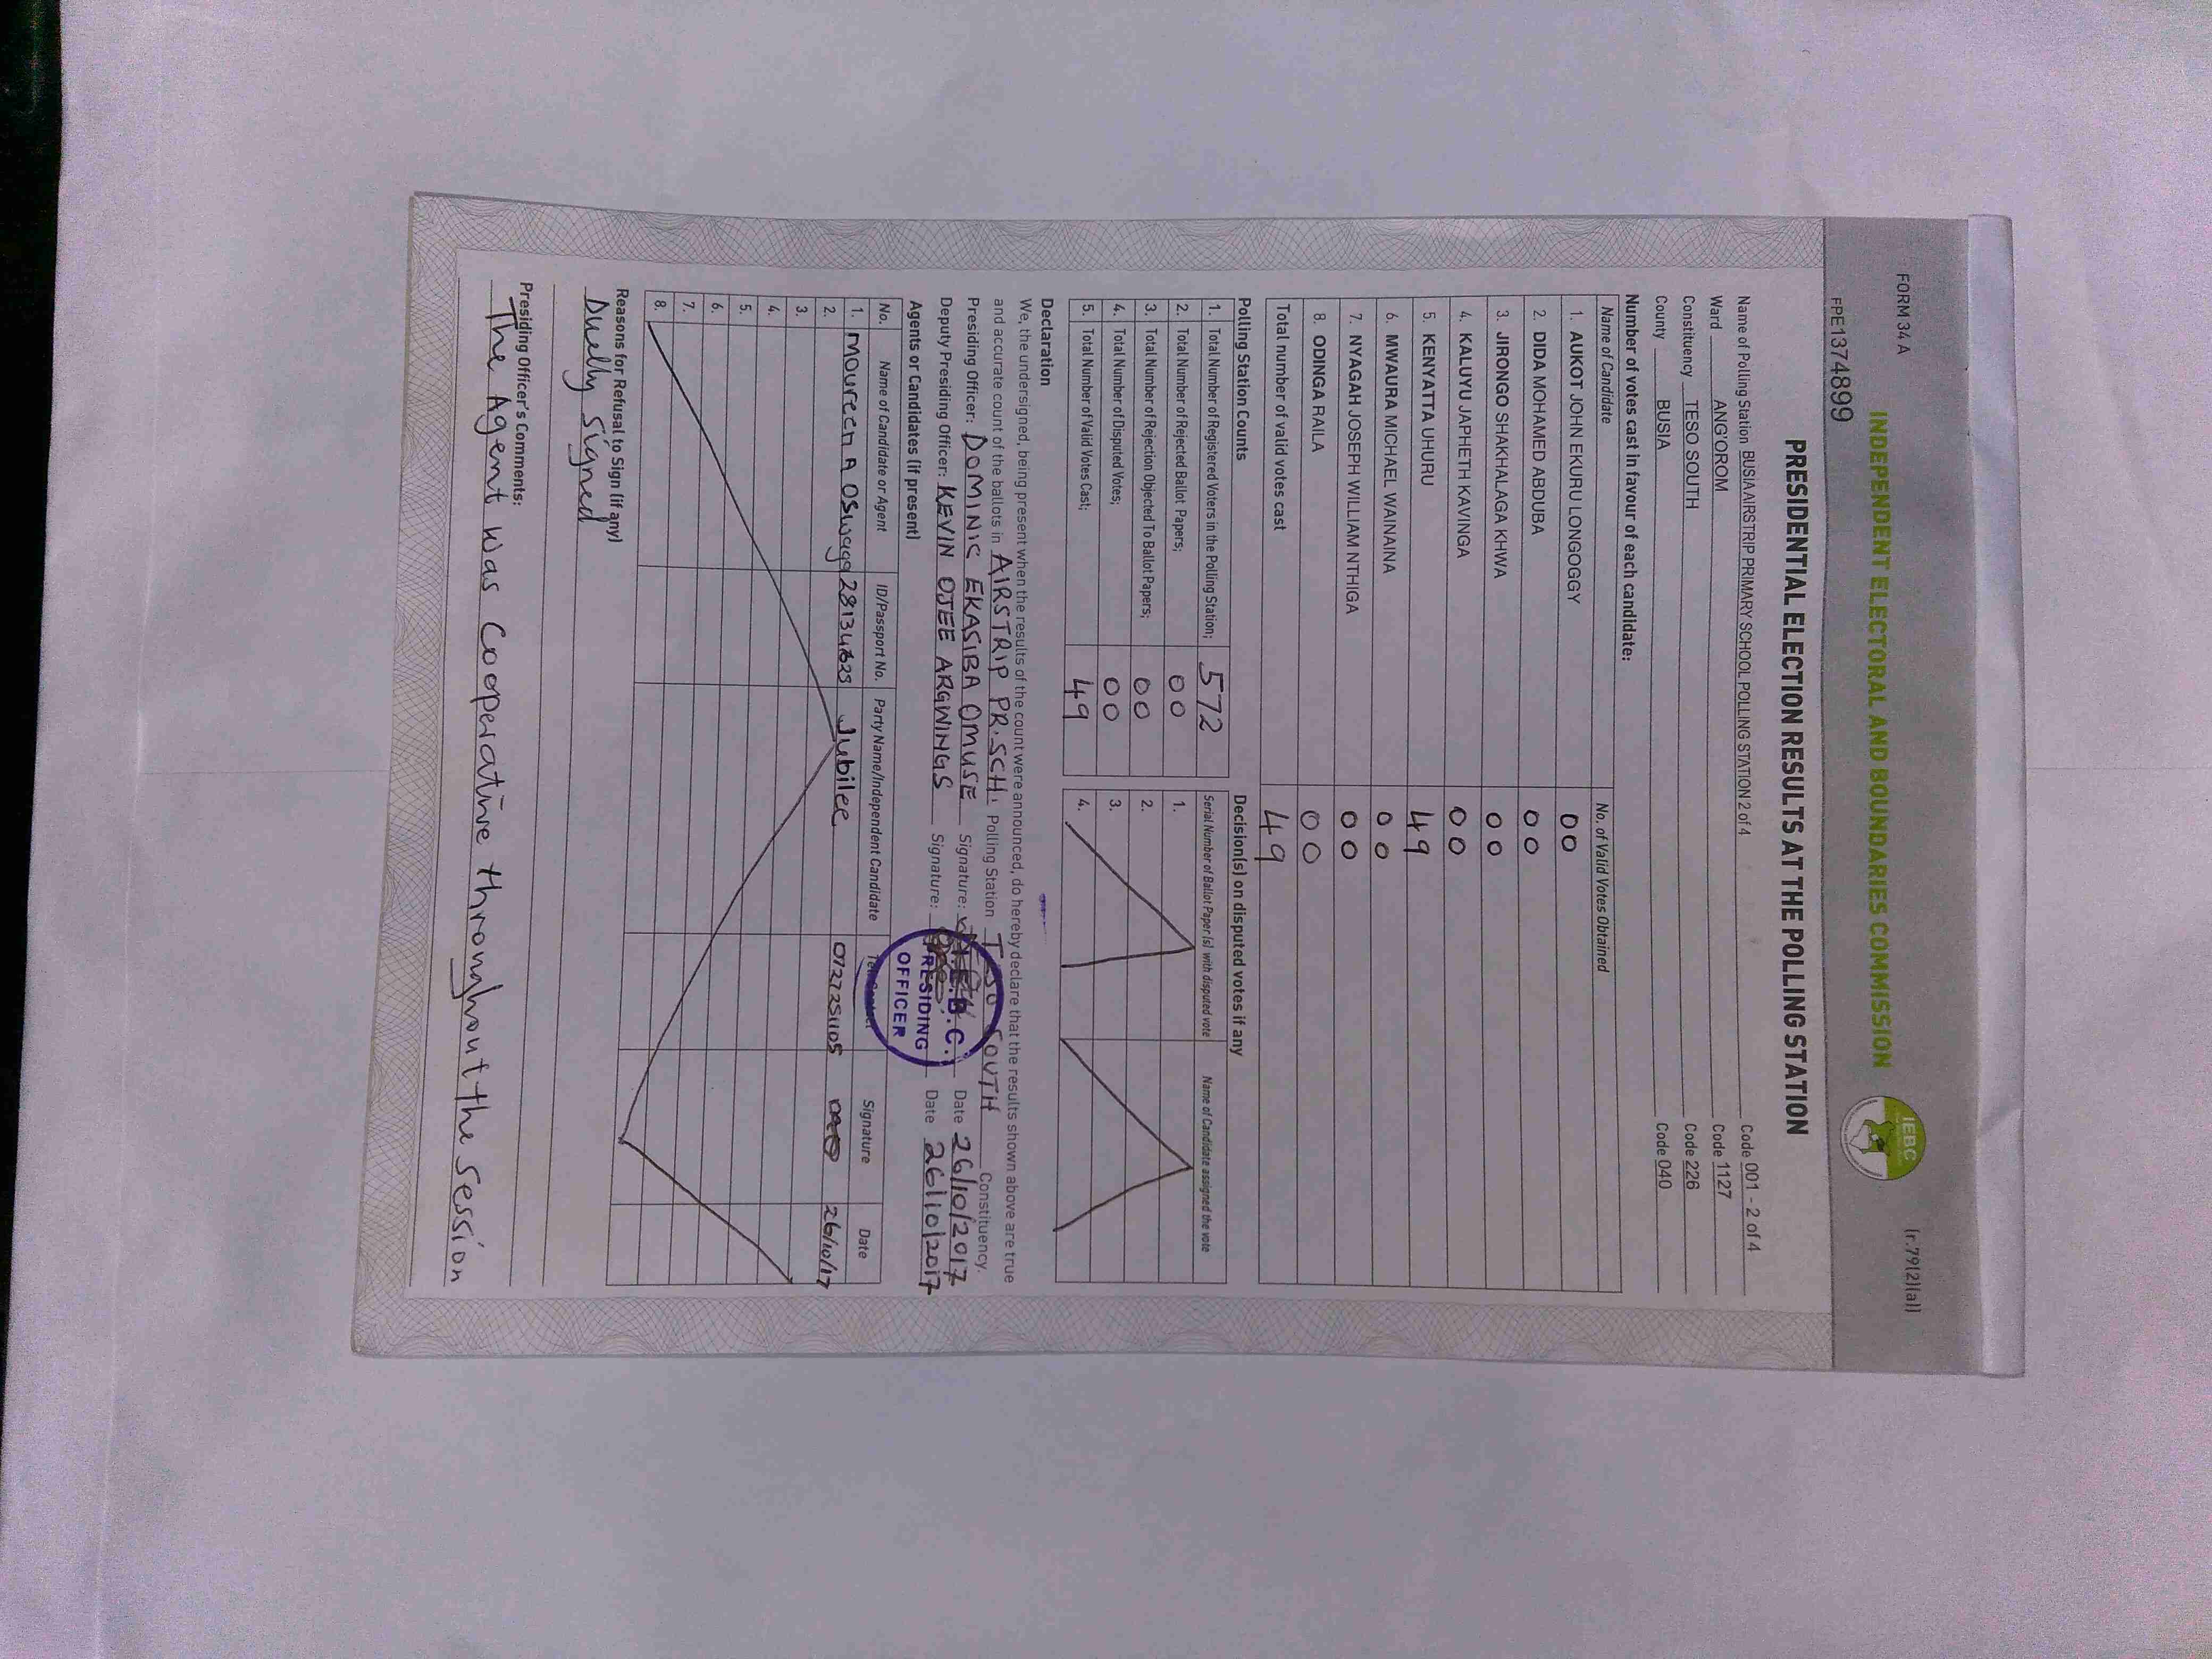 FORM 34 A
(r.79(2)(a))
INDEPENDENT ELECTORAL AND BOUNDARIES COMMISSION
IEBC
FPE1374899
PRESIDENTIAL ELECTION RESULTS AT THE POLLING STATION
Name of Polling Station BUSIA AIRSTRIP PRIMARY SCHOOL POLLING STATION 2 of 4 Code 001 - 2 of 4
Ward ANG'OROM Code 1127
Constituency TESO SOUTH Code 226
County BUSIA Code 040
Number of votes cast in favour of each candidate:
Name of Candidate No. of Valid Votes Obtained
1. AUKOT JOHN EKURU LONGOGGY 00
2. DIDA MOHAMED ABDUBA 00
3. JIRONGO SHAKHALAGA KHWA 00
4. KALUYU JAPHETH KAVINGA 00
5. KENYATTA UHURU 49
6. MWAURA MICHAEL WAINAINA 00
7. NYAGAH JOSEPH WILLIAM NTHIGA 00
8. ODINGA RAILA 00
Total number of valid votes cast 49
Polling Station Counts
1. Total Number of Registered Voters in the Polling Station; 572
2. Total Number of Rejected Ballot Papers; 00
3 Total Number of Rejection Objected To Ballot Papers; 00
4. Total Number of Disputed Votes; 00
5. Total Number of Valid Votes Cast; 49
Decision(s) on disputed votes if any
Serial Number of Ballot Paper (s) with disputed vote Name of Candidate assigned the vote
1.
2.
3.
4.
Declaration
We, the undersigned, being present when the results of the count were announced, do hereby declare that the results shown above are true
and accurate count of the ballots in AIRSTRIP PR.SCH. Polling Station TESO SOUTH Constituency.
Presiding Officer: DOMINIC EKASIBA OMUSE Signature: Date 26/10/2017
Deputy Presiding Officer: KEVIN OJEE ARGWINGS Signature: Date 26/10/2017
I.E.B.C.
PRESIDING
OFFICER
Agents or Candidates (if present)
No. Name of Candidate or Agent ID/Passport No. Party Name/Independent Candidate Tel. Contact Signature Date
1. Moureen A Oswago Jubilee 0727251105 26/10/17
2.
3.
4.
5.
6.
7.
8.
Reasons for Refusal to Sign (if any)
Duelly Signed
Presiding Officer's Comments:
The Agent was Cooperative throughout the session